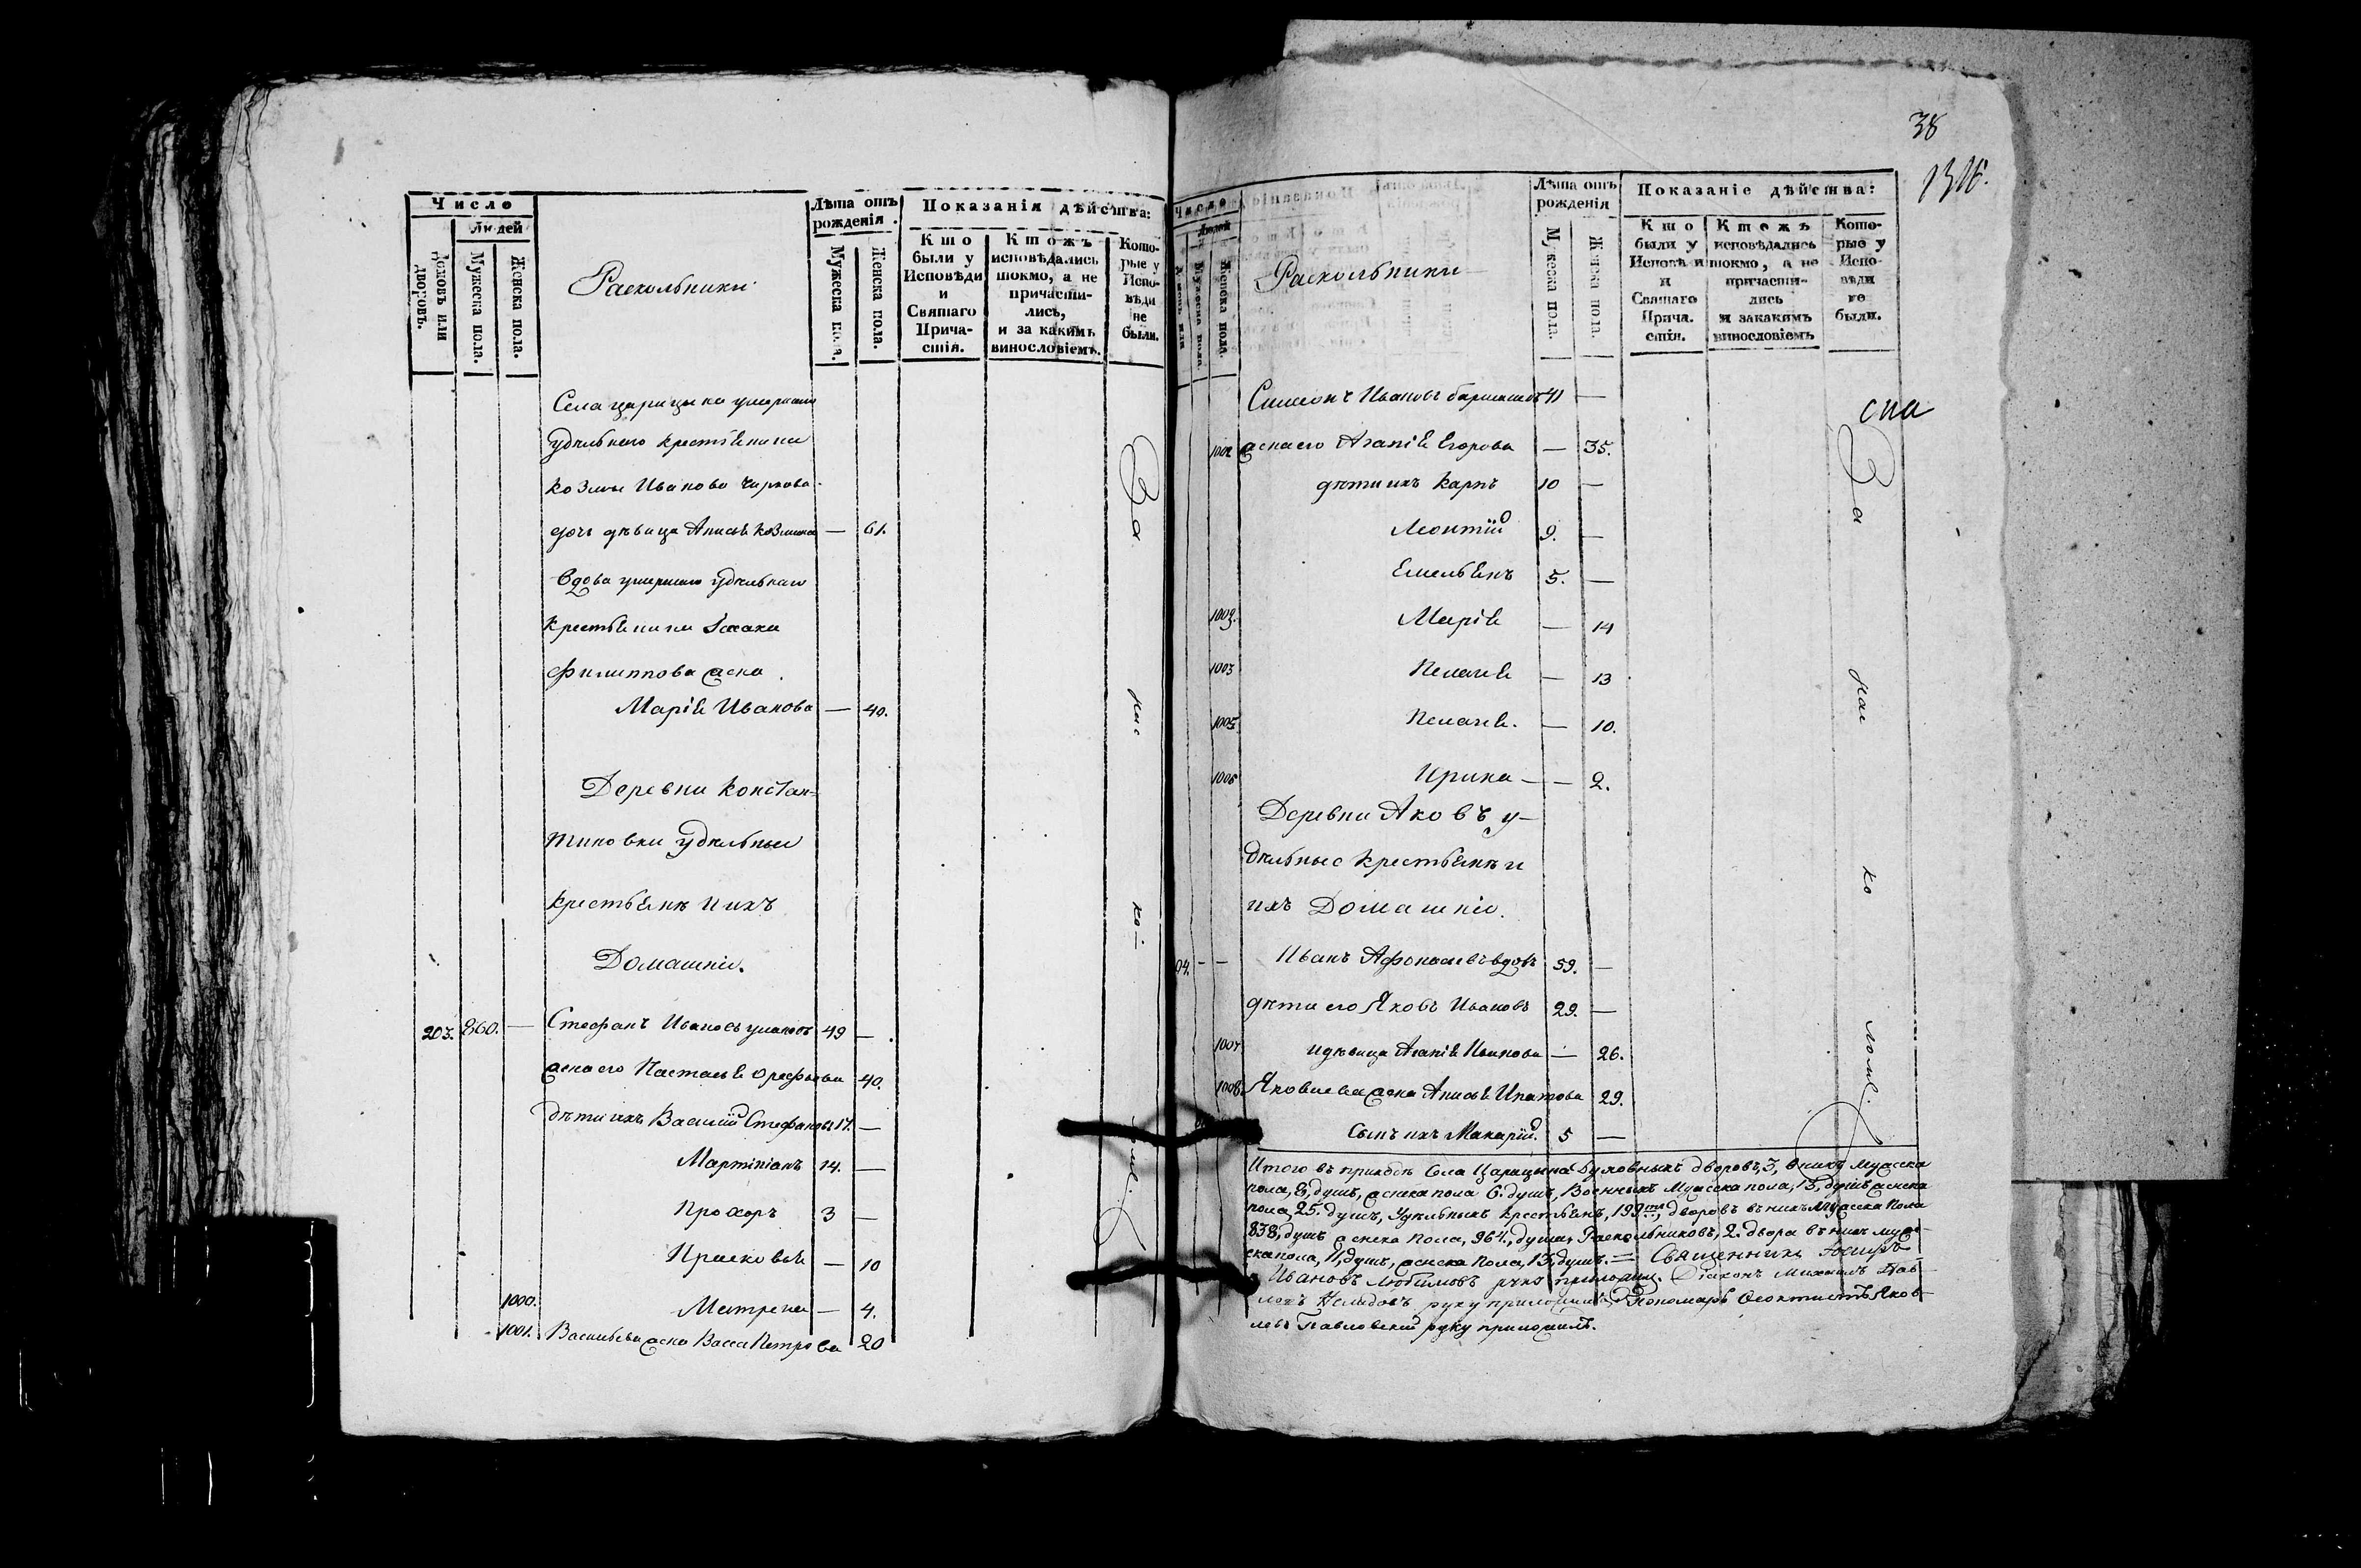 Число
Людей
Домовъ или дворовъ.
Мужеска пола.
Женска пола.
Раскольники
Лѣта отъ рожденія.
Мужеска пола.
Женска пола.
Показанія дѣйства:
Кто были у Исповѣди и Святаго Причастія.
Ктожъ исповѣдались токмо, а не причастились, и за какимъ винословіемъ.
Которые у Исповѣди не были.
Села царицына умершаго
удѣльнаго крестьянина
козмы Иванова
дочь дѣвица Анисья козмина — 61.
вдова умершаго удѣльнаго
крестьянина Ісаака
филиппова жена
Марія Иванова — 40.
Деревни констан=
тиновки удѣльные
крестьяне и ихъ
Домашніе.
203. 860. — Стефанъ Ивановъ 49 —
жена его Настасья Орефьева 40.
дѣти ихъ Василій Стефановъ 17. —
Мартиніанъ 14. —
Прохоръ 3 —
Прасковья — 10
1000. Матрена — 4.
1001. Васильева жена Васса Петрова 20
За рас ко
38
1316.
Число
Людей
Мужеска пола.
Женска пола.
Раскольники
Лѣта отъ рожденія
Мужеска пола.
Женска пола.
Показаніе дѣйства:
Кто были у Исповѣди и Святаго Причастія.
Ктожъ исповѣдались токмо, а не причастились и закакимъ винословіемъ
Которые у Исповѣди не были.
Симеонъ Ивановъ 41 —
1002 жена его Агапія Егорова — 35.
дѣти ихъ Карпъ 10 —
Леонтій 9. —
Емельянъ 5. —
1003. Марія — 14
1003 Пелагея — 13
1005 Пелагея. — 10.
1006 Ирина — — 2.
Деревни Аковъ у-
дѣльные крестьяне и
ихъ Домашніе.
04. — — Иванъ Афонасьевъ вдовъ 59. —
дѣти его Яковъ Ивановъ 29. —
1007 и дѣвица Агапія Иванова — 26.
1008 Яковлева жена Анисья Ипатова 29.
Сынъ ихъ Макарій. 5 —
За рас ко
Итого въ приходѣ Села Царицына Духовныхъ дворовъ, 3, в нихъ Мужеска
пола, 8, душъ, женска пола 6. душъ, Военныхъ Мужеска пола, 13, душъ женска
пола, 25. душъ, Удѣльныхъ крестьянъ, 199ть, дворовъ въ нихъ Мужеска Пола
838, душъ женска Пола, 964, душа, Раскольниковъ, 2. двора въ нихъ муже-
ска пола, 11, душъ, женска Пола, 13, душъ. = Священникъ
Ивановъ Любимовъ руку приложилъ. Діаконъ Михаилъ Пав-
ловъ руку приложилъ Пономарь Феоктистъ Яков-
левъ Павловскій руку приложилъ.